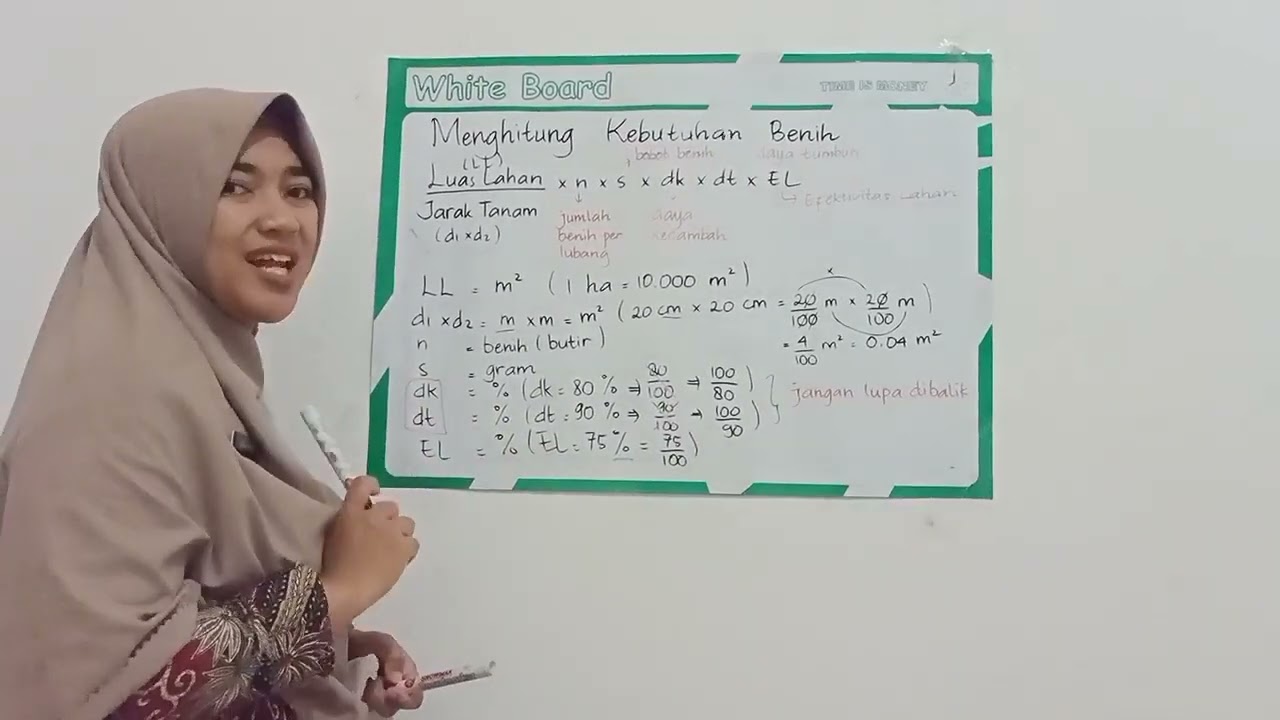 White Board
TIME IS MONEY
Menghitung Kebutuhan Benih
bobot benih daya tumbuh
(LL)
Luas Lahan × n × s × dk × dt × EL
↳ Efektivitas Lahan
Jarak Tanam
(d₁ × d₂)
jumlah
benih per
lubang
daya
kecambah
LL = m² (1 ha = 10.000 m²)
d₁ × d₂ = m × m = m² (20 cm × 20 cm = 20/100 m × 20/100 m)
= 4/100 m² = 0.04 m²
n = benih (butir)
s = gram
dk = % (dk = 80 % ⇒ 80/100 ⇒ 100/80)
dt = % (dt = 90 % ⇒ 90/100 → 100/90)
jangan lupa dibalik
EL = % (EL = 75 % = 75/100)